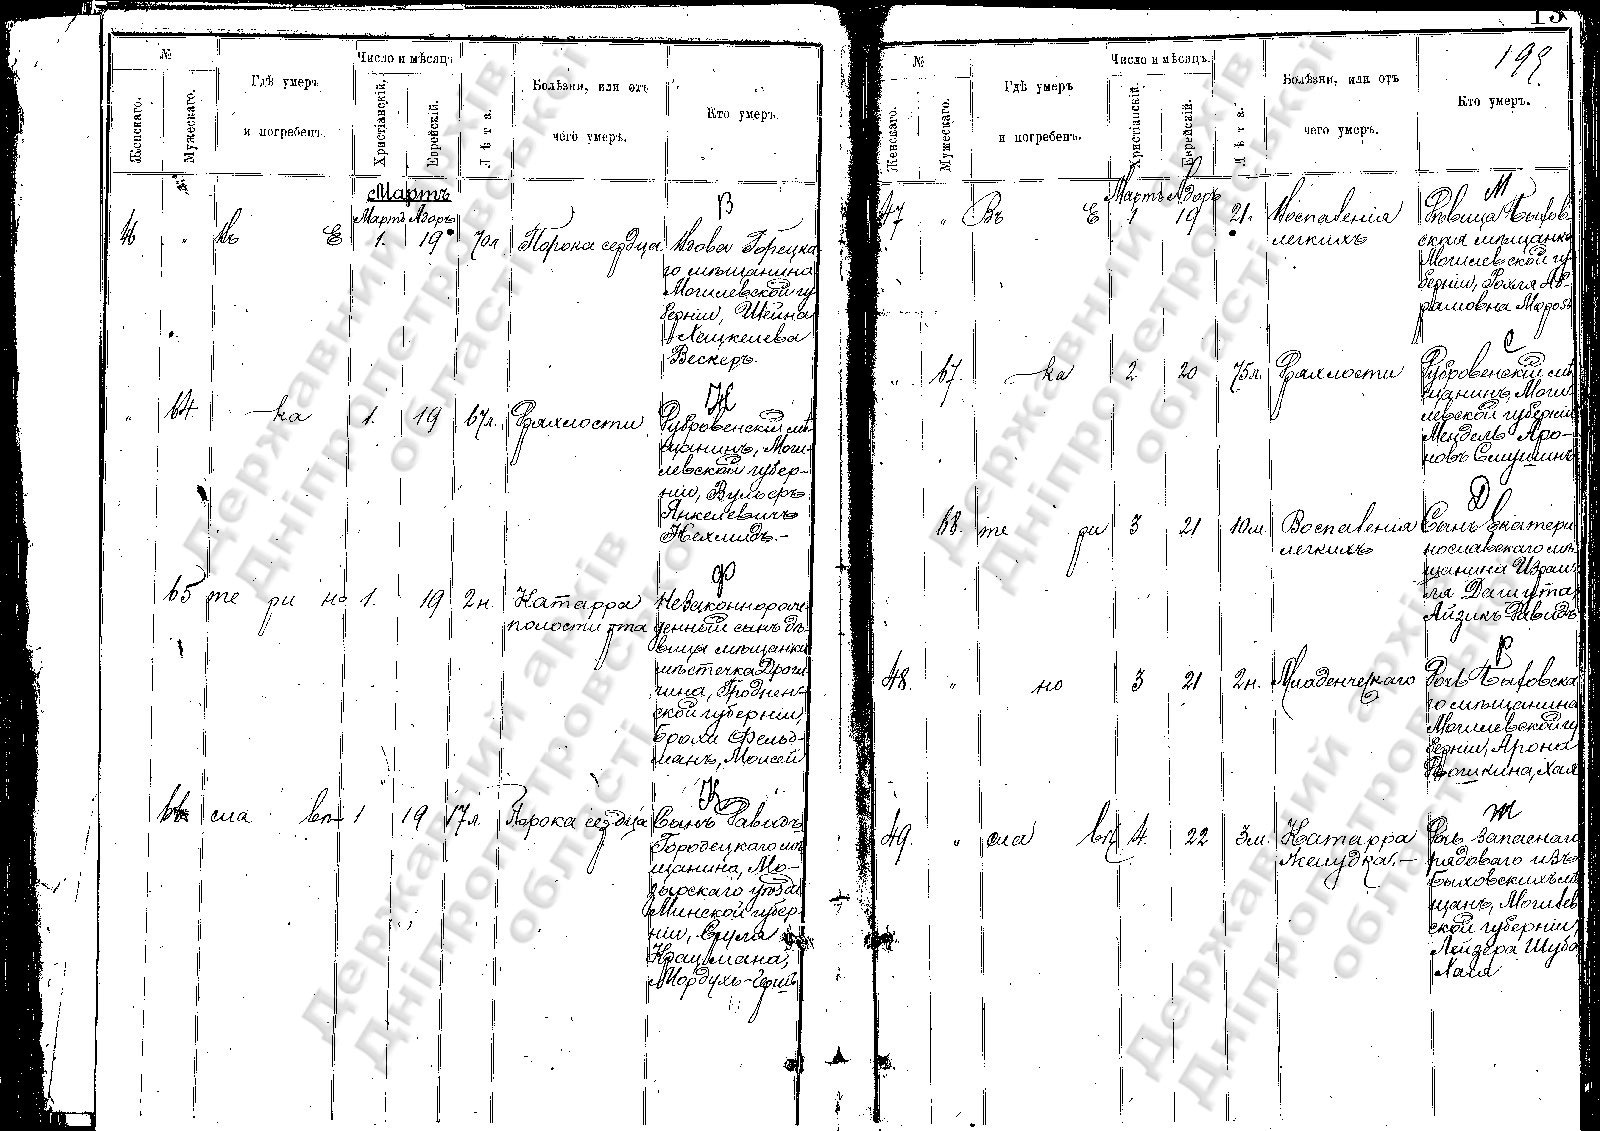 199
№
Женскаго.
Мужескаго.
Гдѣ умеръ
и погребенъ.
Число и мѣсяцъ
Христіанскій.
Еврейскій.
Лѣта.
Болѣзни, или отъ
чего умеръ.
Кто умеръ.
Мартъ
Мартъ Адоръ
В
46 " Въ Е 1. 19 70л Порока сердца Вдова Горецка-
го мѣщанина
Могилевской гу
берніи, Шейна
Хацкелева
Вескеръ.
Н
" 64. ка 1. 19 67л. Дряхлости Дубровенскій мѣ-
щанинъ, Моги-
левской губер-
ніи, Вульфъ
Янкелевичъ
Нехлидъ.-
Ф
65 те ри но 1. 19 2н. Катарра Незаконнорож-
полости рта денный сынъ дѣ-
вицы мѣщанки
мѣстечка Дроги
чина, Гроднен-
ской губерніи,
Брохи Фельд-
манъ, Моисей
К
66 сла вѣ 1 19 17л. Порока сердца Сынъ Давидъ
Городецкаго мѣ
щанина, Мо-
зырскаго уѣзда
Минской губер-
ніи, Сруля
Крацмана,
Мордухъ-Герцъ
№
Женскаго.
Мужескаго.
Гдѣ умеръ
и погребенъ.
Число и мѣсяцъ.
Христіанскій.
Еврейскій.
Лѣта.
Болѣзни, или отъ
чего умеръ.
Кто умеръ.
Мартъ Адоръ
М
47 " Въ Е 1 19 21. Воспаленія Дѣвица Быхов
легкихъ ская мѣщанка
Могилевской гу-
берніи, Рохля Аб-
рамовна
С
" 67. ка 2 20 75л. Дряхлости Дубровенскій мѣ
щанинъ, Моги-
левской губерніи
Мендель Аро-
новъ
Д
68. те ри 3 21 10м. Воспаленія Сынъ Екатери
легкихъ нославскаго мѣ
щанина Израи-
ля
Айзикъ Давидъ
Р
48. " но 3 21 2н. Младенческаго Дочь Быховска
го мѣщанина
Могилевской гу
берніи, Арона
Хая
Ш
49. " сла вѣ 4. 22 3м. Катарра Дочь запаснаго
желудка.- рядоваго изъ
Быховскихъ мѣ
щанъ, Могилев
ской губерніи,
Лейзера Шуба
Хая
Державний архів
Дніпропетровської
області